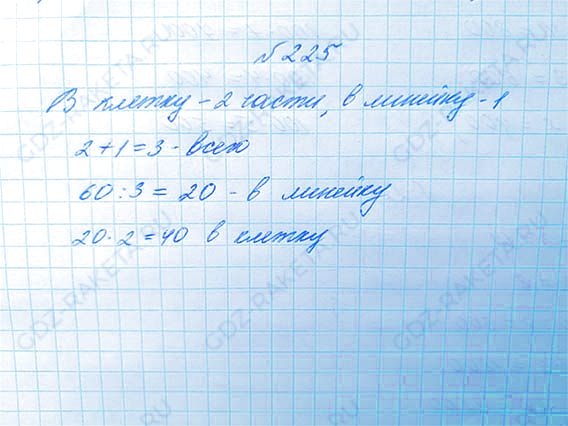 №225
В клетку - 2 части, в линейку - 1
2+1=3 - всего
60:3=20 - в линейку
20·2=40 в клетку
GDZ-RAKETA.RU